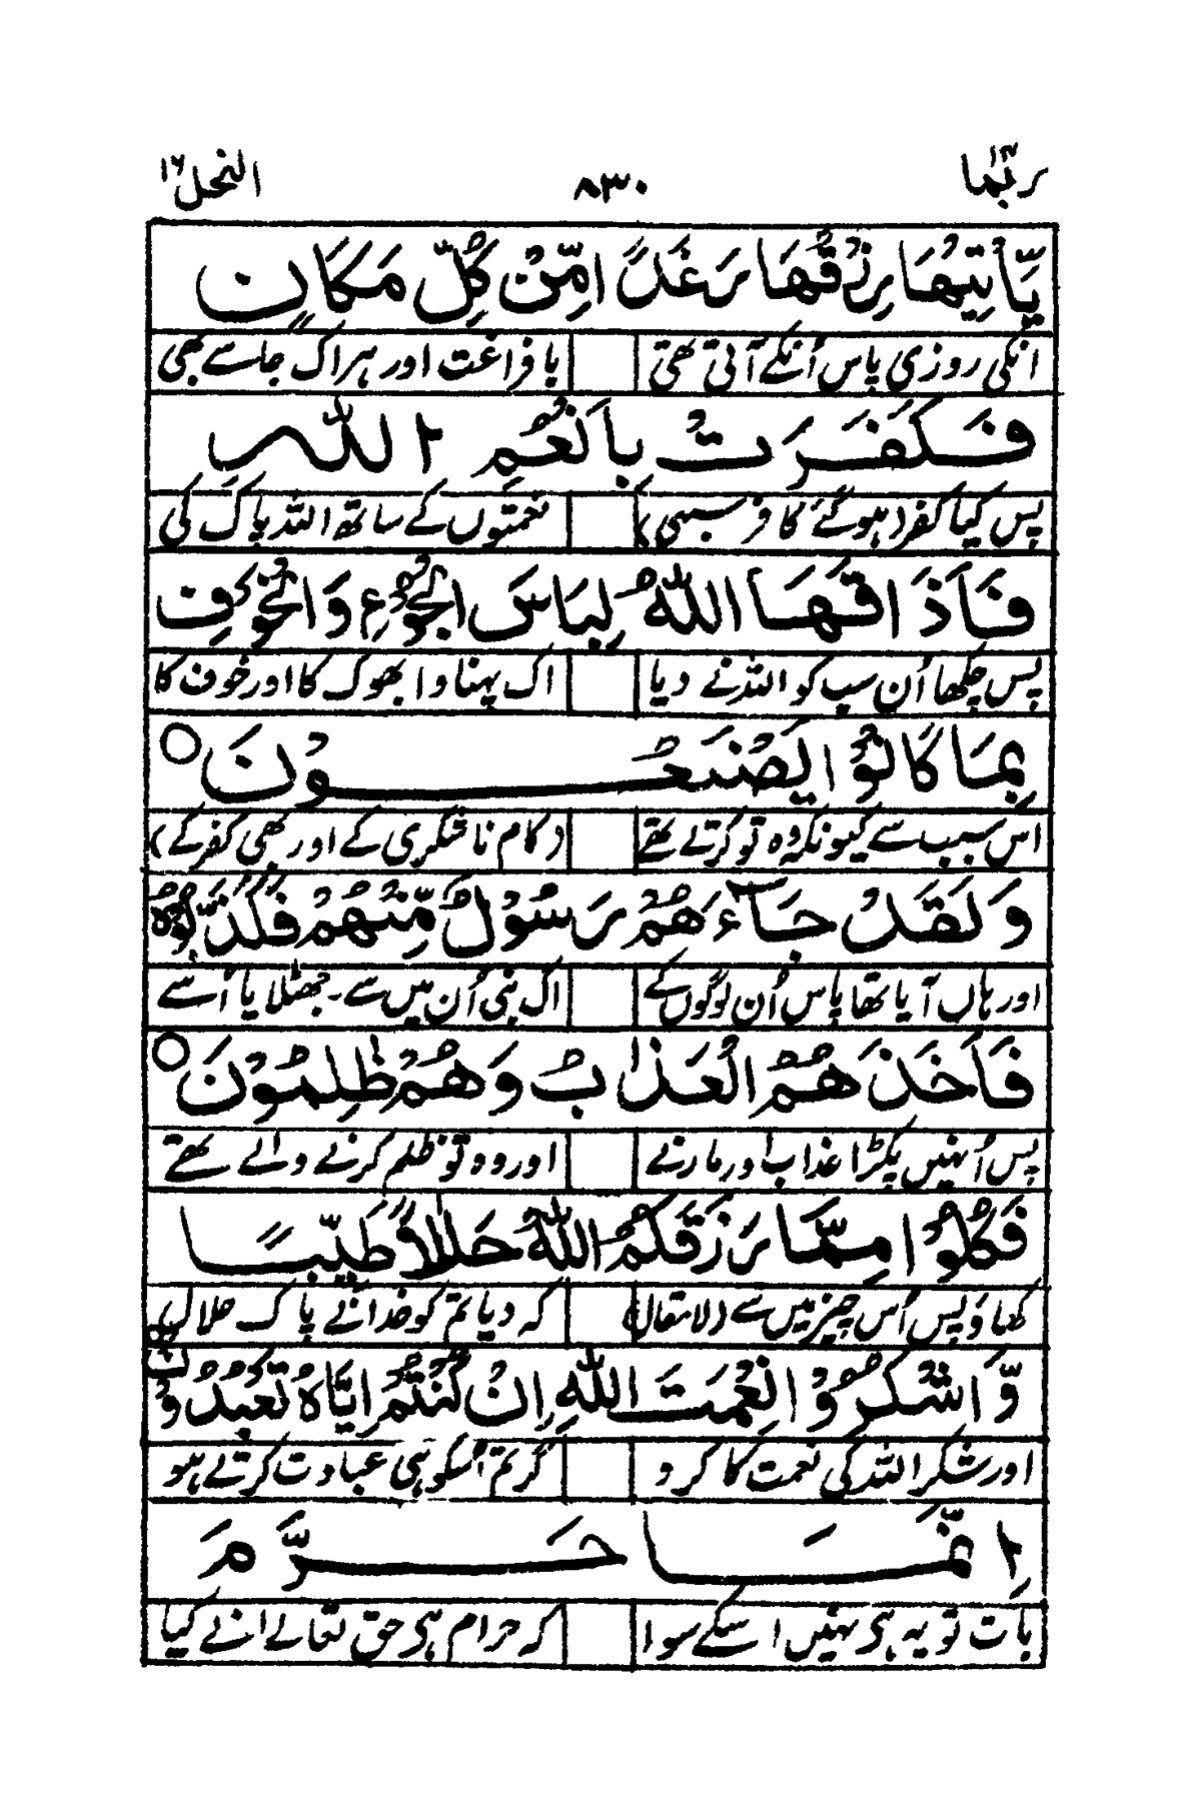 ربما ١٤ ٨٣٠ النحل ١٦
يَّأْتِيْهَا رِزْقُهَا رَغَدًا مِّنْ كُلِّ مَكَانٍ
انکی روزی پاس اُنکے آتی تھی با فراغت اور ہر اک جا سے بھی
فَكَفَرَتْ بِاَنْعُمِ اللّٰهِ
پس کیا کفر (ہوگئے کافر سبھی) نعمتوں کے ساتھ اللہ پاک کی
فَاَذَاقَهَا اللّٰهُ لِبَاسَ الْجُوْعِ وَالْخَوْفِ
پس چکھا اُن سب کو اللہ نے دیا اک پہناوا بھوک کا اور خوف کا
بِمَا كَانُوْا يَصْنَعُوْنَ ○
اس سبب سے کیونکہ وہ تو کرتے تھے (کام ناشکری کے اور بھی کفر کے)
وَلَقَدْ جَآءَهُمْ رَسُوْلٌ مِّنْهُمْ فَكَذَّبُوْهُ
اور ہاں آیا تھا پاس اُن لوگوں کے اک نبی اُن میں سے۔ جھٹلایا اُسے
فَاَخَذَهُمُ الْعَذَابُ وَهُمْ ظٰلِمُوْنَ ○
پس اُنہیں پکڑا عذاب اور مار نے اور وہ تو ظلم کرنے والے تھے
فَكُلُوْا مِمَّا رَزَقَكُمُ اللّٰهُ حَلٰلًا طَيِّبًا
کھاؤ پس اُس چیز میں سے (لا مقال) کہ دیا تم کو خدا نے پاک حلال
وَّاشْكُرُوْا نِعْمَتَ اللّٰهِ اِنْ كُنْتُمْ اِيَّاهُ تَعْبُدُوْنَ
اور شکر اللہ کی نعمت کا کرو گر تم اُسکو ہی عبادت کرتے ہو
اِنَّمَا حَرَّمَ
بات تو یہ ہی نہیں اسکے سوا کہ حرام ہی حق تعالےٰ نے کیا